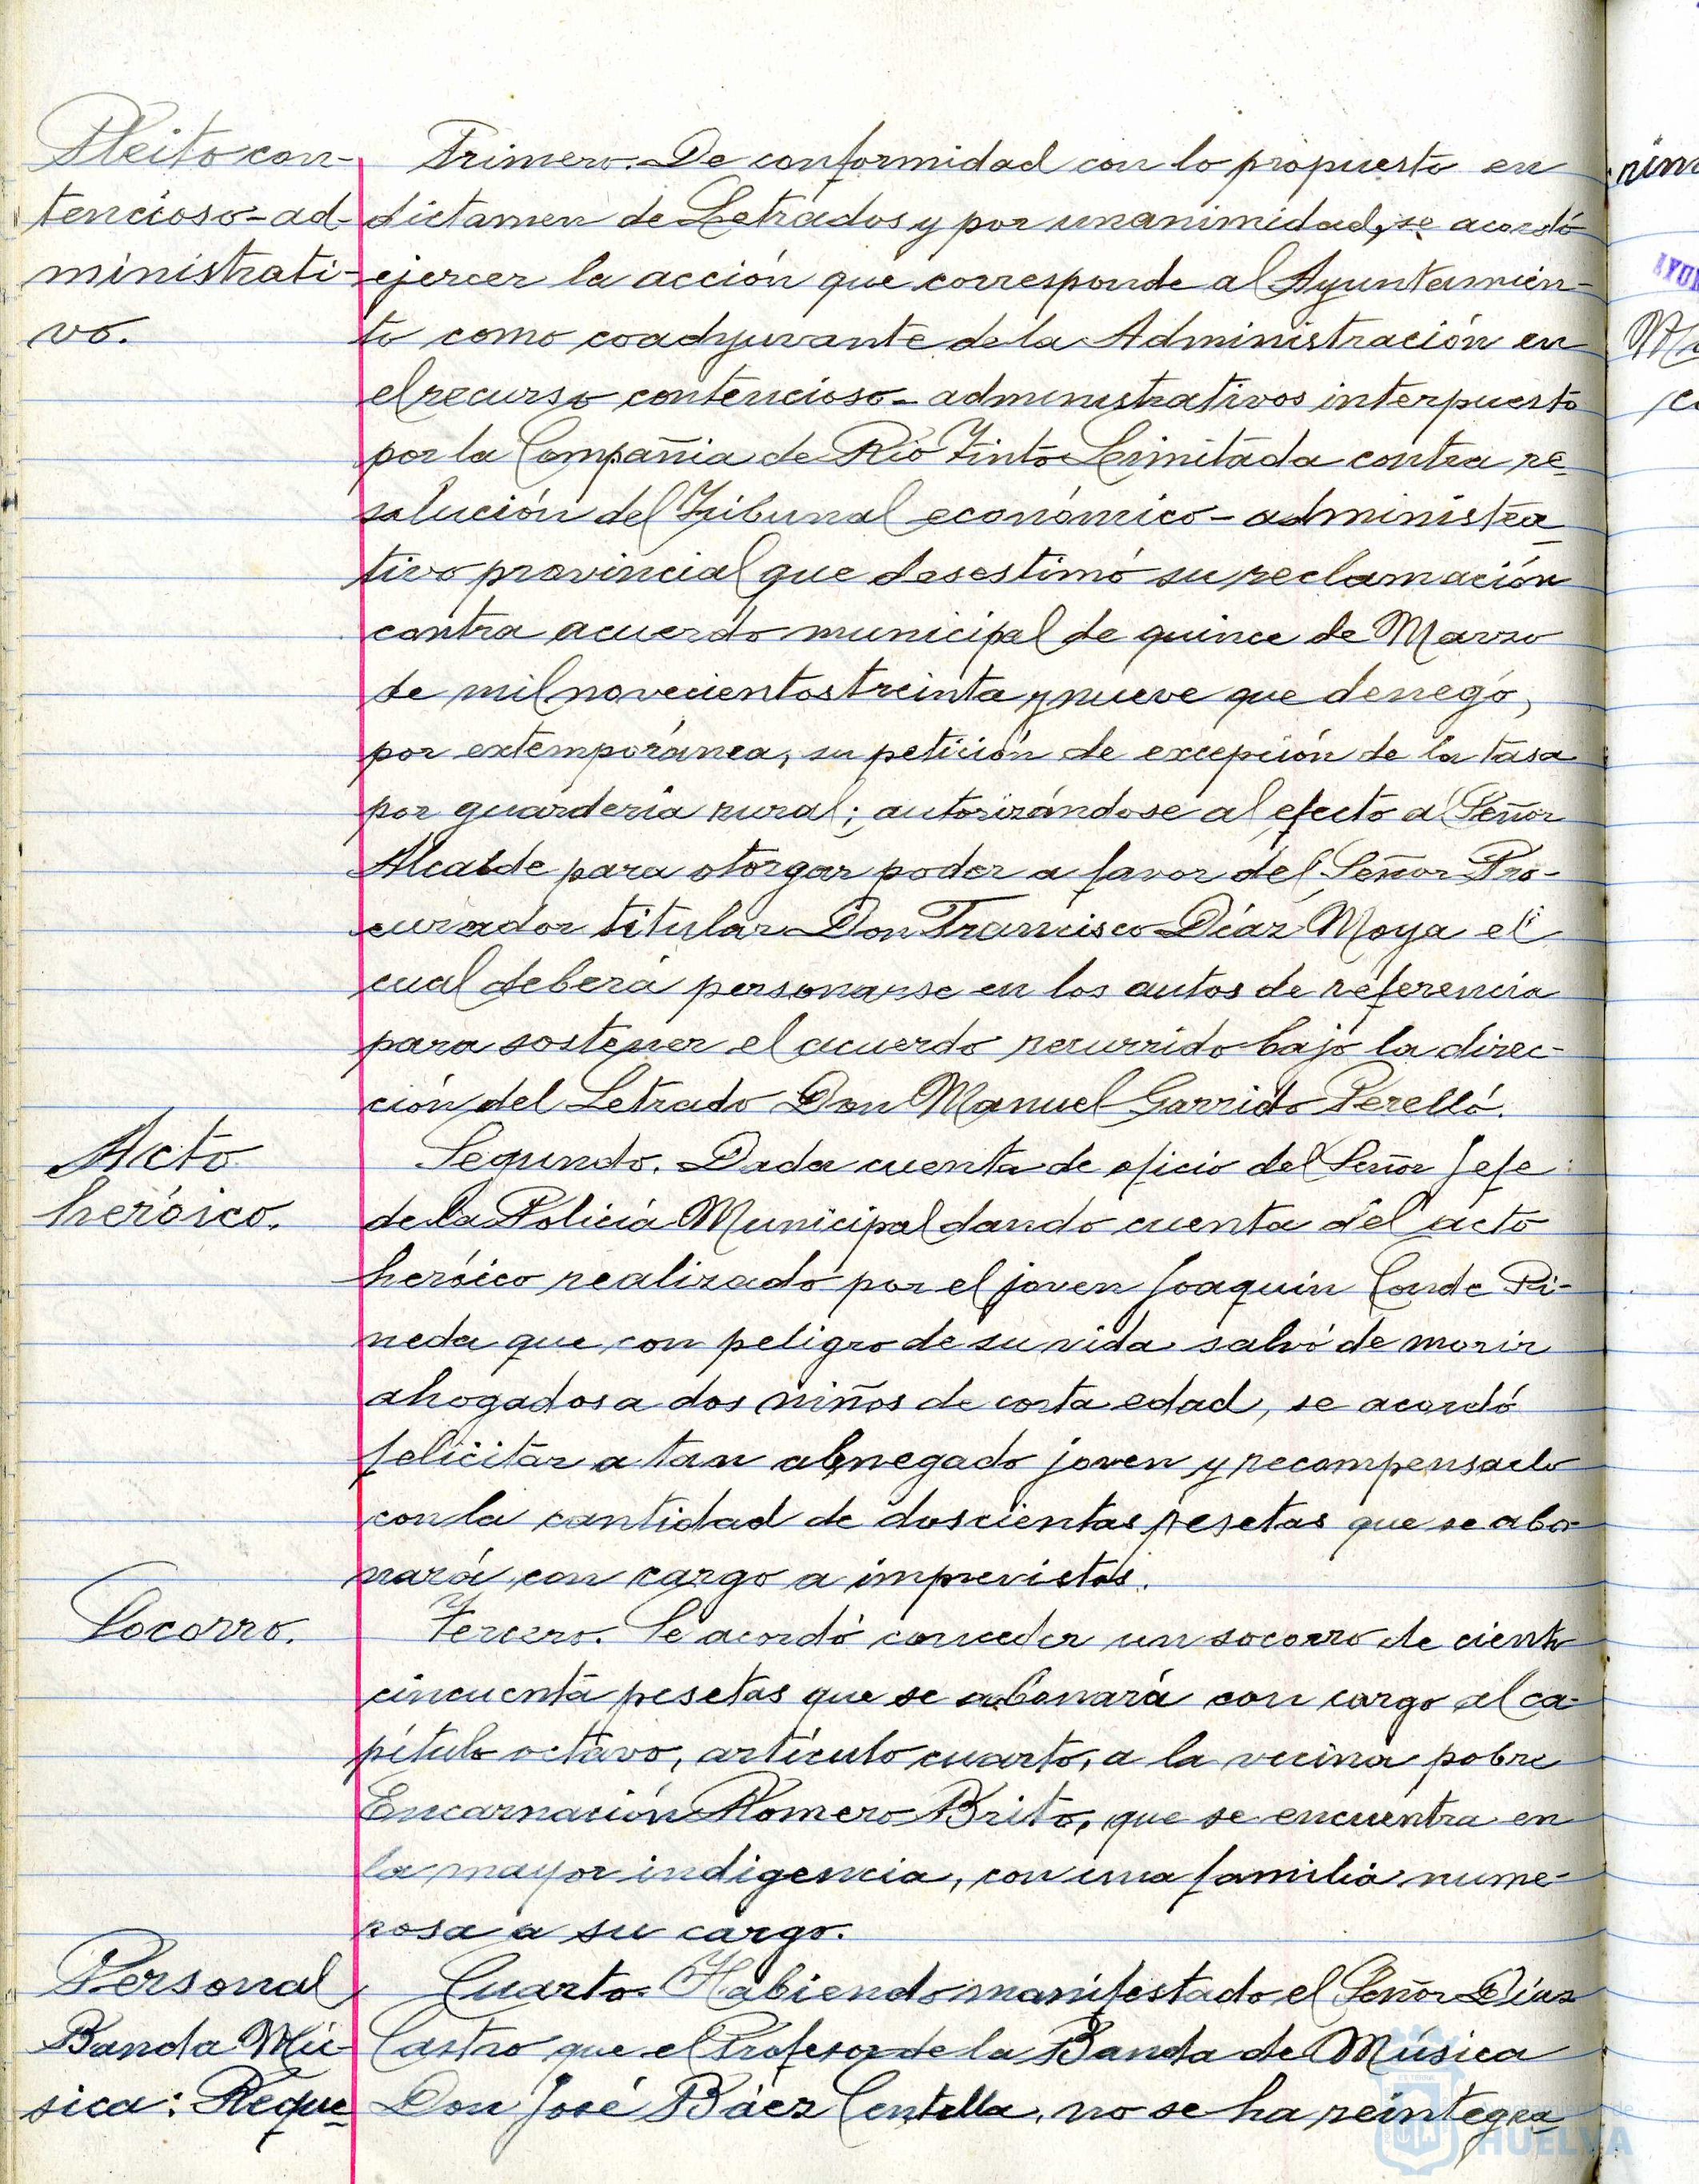 Pleito con-
tencioso-ad-
ministrati-
vo.
Primero. De conformidad con lo propuesto en
dictamen de Letrados y por unanimidad, se acordó
ejercer la acción que corresponde al Ayuntamien-
to como coadyuvante de la Administración en
el recurso contencioso-administrativos interpuesto
por la Compañia de Rio Tinto Limitada contra re-
solución del Tribunal económico-administra
tivo provincial que desestimó su reclamación
contra acuerdo municipal de quince de Marzo
de mil novecientos treinta y nueve que denegó,
por extemporánea, su petición de excepción de la tasa
por guarderia rural; autorizándose al efecto al Señor
Alcalde para otorgar poder a favor del Señor Pro-
curador titular Don Francisco Díaz Moya el
cual deberá personarse en los autos de referencia
para sostener el acuerdo recurrido bajo la direc-
ción del Letrado Don Manuel Garrido Perelló.
Acto
heróico.
Segundo. Dada cuenta de oficio del Señor Jefe
de la Policia Municipal dando cuenta del acto
heróico realizado por el joven Joaquin Conde Pi-
neda que con peligro de su vida salvó de morir
ahogados a dos niños de corta edad, se acordó
felicitar a tan abnegado joven y recompensarlo
con la cantidad de doscientas pesetas que se abo-
nará con cargo a imprevistos.
Socorro.
Tercero. Se acordó conceder un socorro de ciento
cincuenta pesetas que se abonará con cargo al ca-
pítulo octavo, artículo cuarto, a la vecina pobre
Encarnación Romero Brito, que se encuentra en
la mayor indigencia, con una familia nume-
rosa a su cargo.
Personal
Banda Mú-
sica: Reque-
Cuarto. Habiendo manifestado el Señor Díaz
Castro que el Profesor de la Banda de Música
Don José Báez Centella, no se ha reintegra
HUELVA